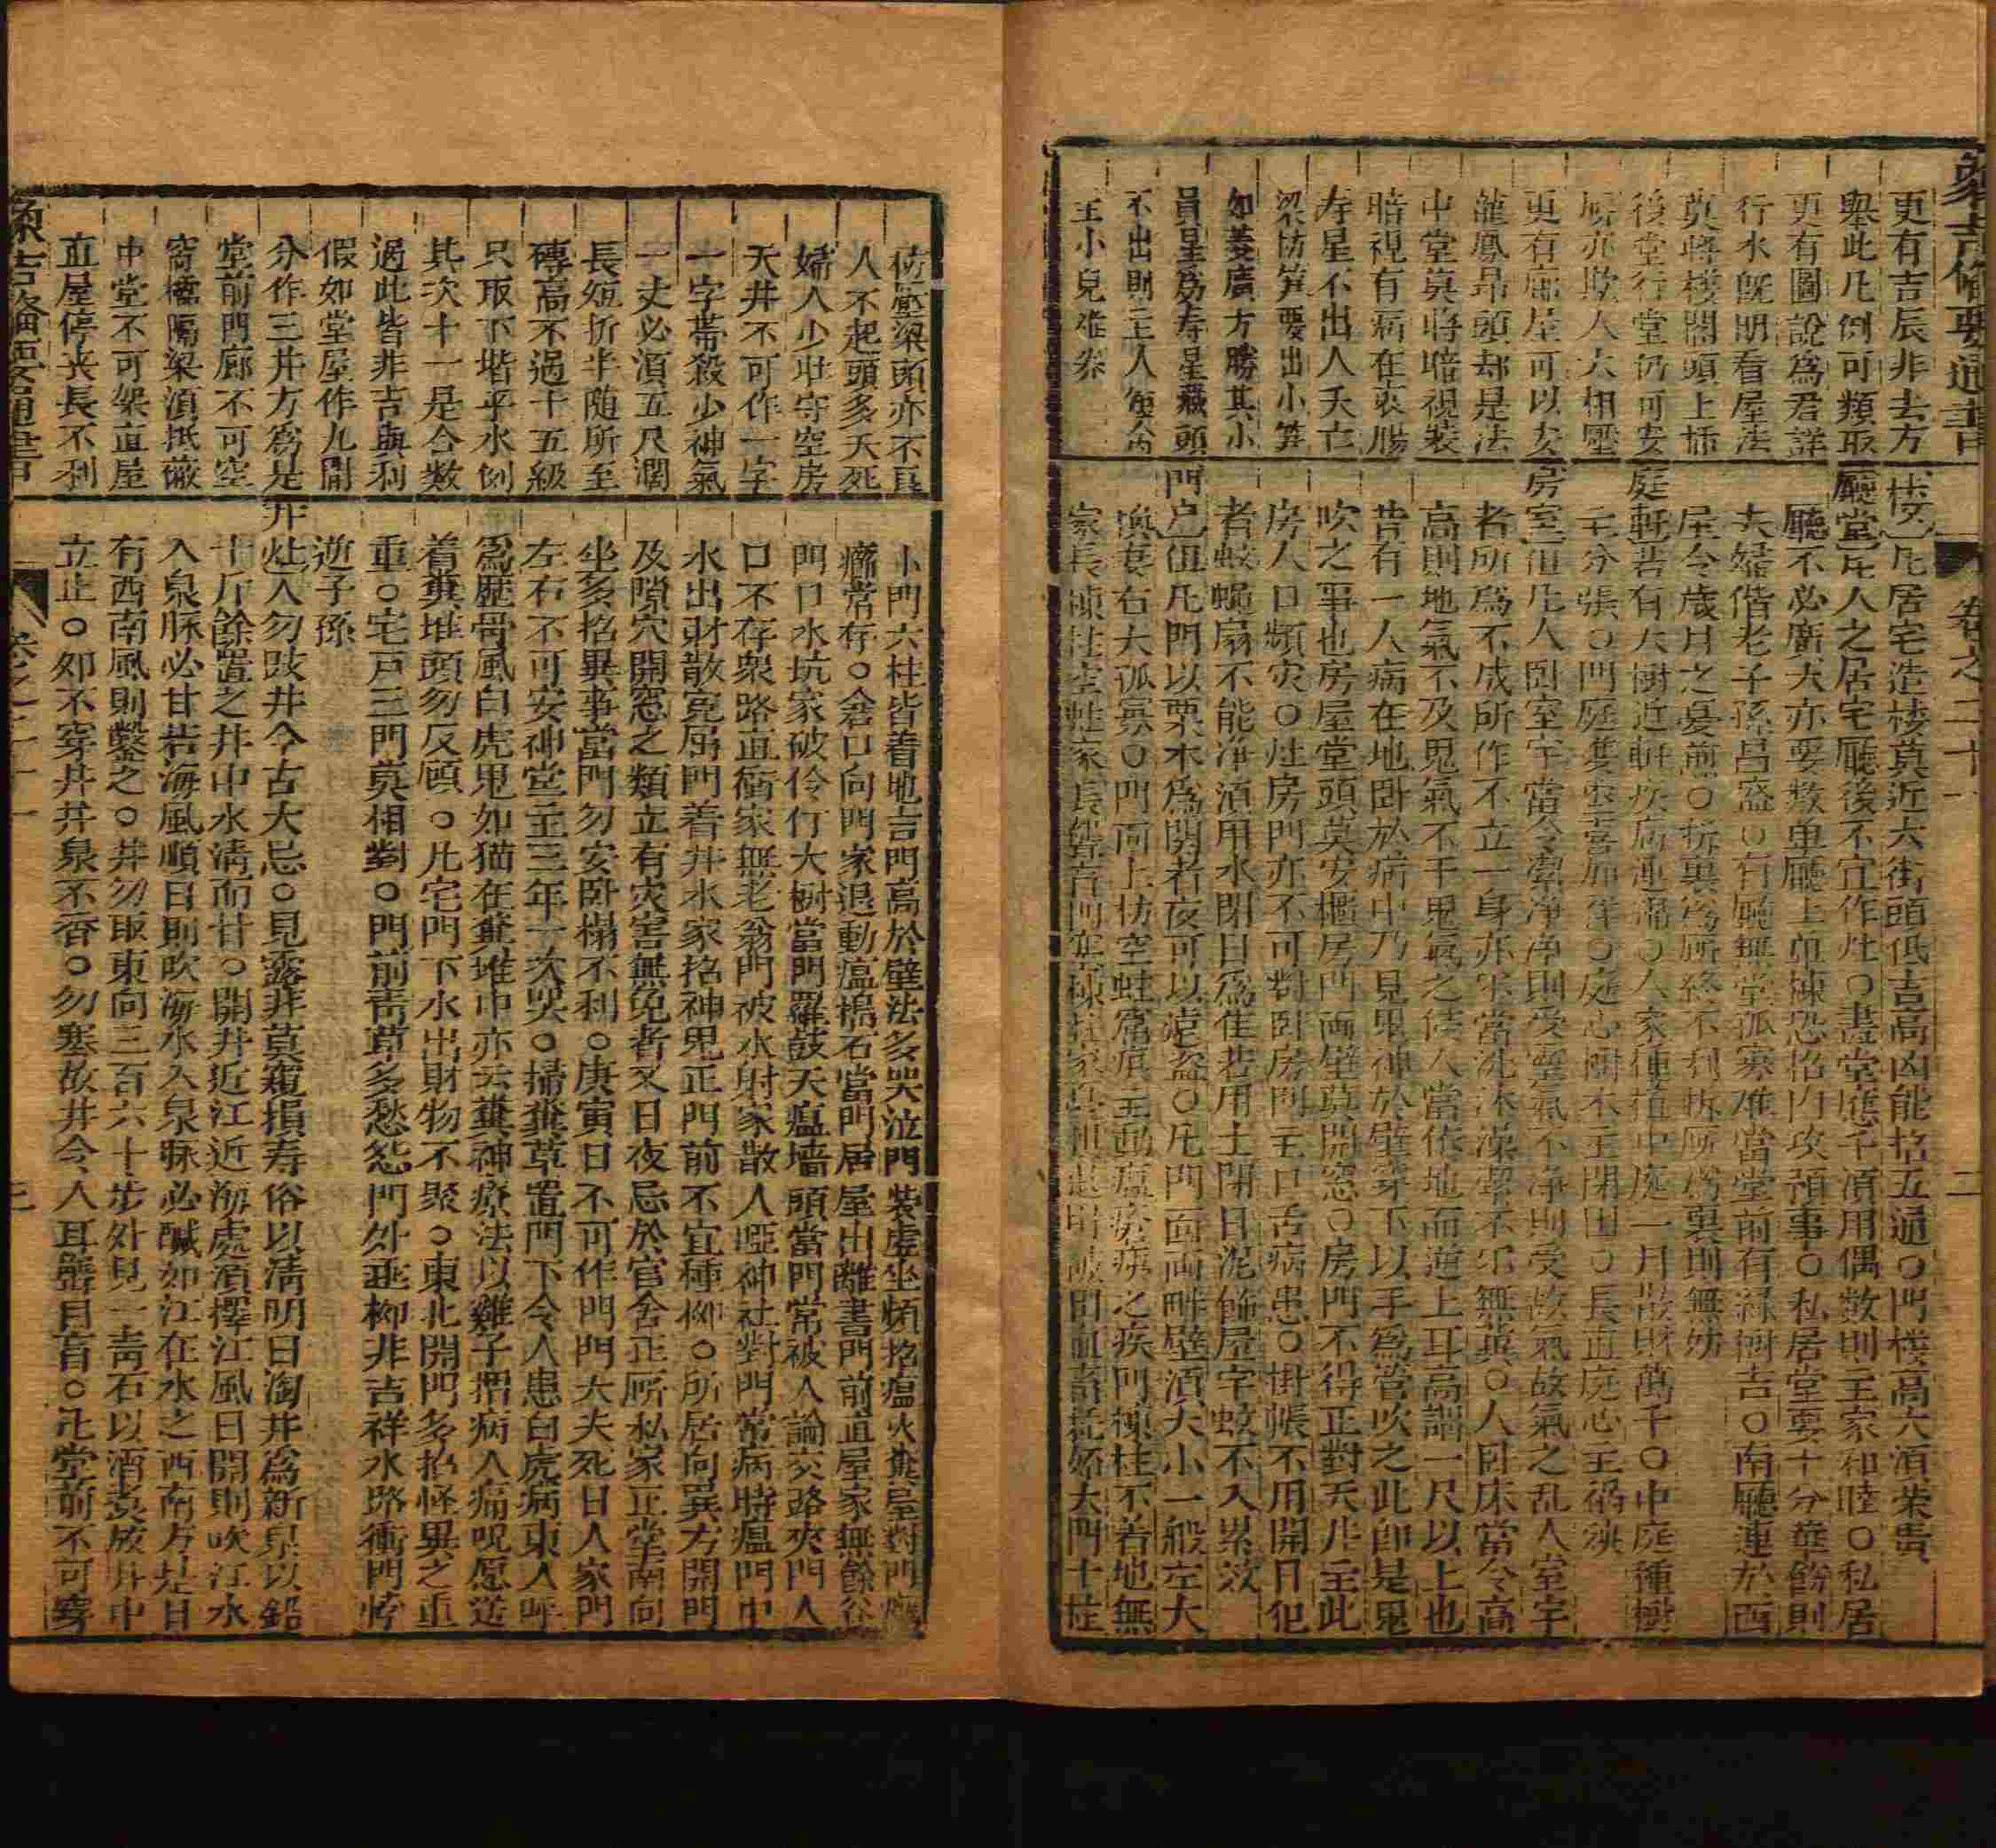 象吉備要通書
卷之二十一
二
更有吉辰非去方
舉此凡例可類取
更有圖說為君詳
行水既明看屋法
莫將樓閣頭上
後堂行堂仍可安
廁亦欺人大相壓
更有廊屋可以安
龍鳳昂頭却是法
中堂莫將暗視裝
暗視有病在衷腸
寿星不出人夭亡
梁枋笋要出小笋
如菱廣方勝其小
員星為寿星藏頭
不出則主人
主小兒难养
樓凡居宅造樓莫近大街頭低吉高凶能招五通〇門樓高大須荣貴
廳堂凡人之居宅廳後不宜作灶〇書堂應千須用偶数則主家和睦〇私居
廳不必廣大亦要数单廳上单棟恐招内攻預事〇私居堂要十分
夫婦偕老子孫昌盛〇有廳無堂孤寡难當堂前有綠樹吉〇南廳連於西
屋令歲月之憂煎〇拆裏為廁終不利拆廁為裏則無妨
庭軒若有大樹近軒疾病連綿〇人家種植中庭一月散財萬千〇中庭種樹
主分張〇門庭雙枣喜加祥〇庭心樹木主閑困〇長直庭心主禍殃
房室但凡人卧室宇當令潔净净則受靈氣不净則受故氣故氣之乱人室宇
者所為不成所作不立一身亦尔當洗沐澡潔不尔無冀〇人卧床當令高
高則地氣不及鬼氣不干鬼氣之侵人當依地而逆上耳高謂一尺以上也
昔有一人病在地卧於病中乃見鬼神於壁穿下以手為管吹之此即是鬼
吹之事也房屋堂頭莫安櫃房門兩壁莫開窓〇房門不得正對天井主此
房人口頻灾〇灶房門亦不可對卧房門主口舌病患〇掛帳不用開日犯
者蚊蠅扇不能净須用水閉日為佳若用土閉日泥飾屋宇蚊不入累效
門戶但凡門以栗木為関者夜可以遠盗〇凡門面兩畔壁須大小一般左大
換妻右大孤寡〇門面上枋空蛀窟痕主動瘟疫病之疾門棟柱不着地無
家長棟柱空蛀家長
小門六柱皆着地吉門高於壁法多哭泣門
人不起頭多夭死
婦人少壮守空房
天井不可作一字
一字帶殺少神氣
一丈必須五尺濶
長短折半随所至
磚高不過十五級
只取下堦乎水倒
其次十一是合数
過此皆非吉與利
假如堂屋作九間
分作三井方為是
堂前門廊不可空
窗櫺隔梁須抵嶶
中堂不可架直屋
直屋停丧長不利
癤常存〇倉口向門家退動瘟槝石當門居屋出離書門前直屋家無餘谷
門口水坑家破伶仃大樹當門羅鼓天瘟墻頭當門常被人論交路夾門人
口不存衆路直衝家無老翁門被水射家散人啞神社對門常病時瘟門中
水出財散冤屈門着井水家招神鬼正門前不宜種柳〇所居向巽方開門
及隙穴開窓之類立有灾害無免者又日夜忌於官舍正廁私家正堂南向
坐多招異事當門勿安卧榻不利〇庚寅日不可作門門大夫死日人家門
左右不可安神堂主三年一次哭〇掃糞草置門下令人患白虎病東人呼
為歷骨風白虎鬼如猫在糞堆中亦云糞神療法以雞子揩病人痛呪愿送
着糞堆頭勿反顧〇凡宅門下水出財物不聚〇東北開門多招怪異之重
重〇宅戸三門莫相對〇門前靑草多愁怨門外垂柳非吉祥水路衝門忤
逆子孫
井灶人勿跂井今古大忌〇見露井莫窺損寿俗以清明日淘井為新泉以鉛
十斤餘置之井中水清而甘〇開井近江近海處須擇江風日開則吹江水
入泉脉必甘若海風順日則吹海水入泉脉必鹹如江在水之西南方是日
有西南風則鑿之〇井勿取東向三百六十步外見一靑石以酒煮放井中
立止〇卯不穿井井泉不香〇勿塞故井令人耳聾目盲〇凡堂前不可穿
卷之二十一
三